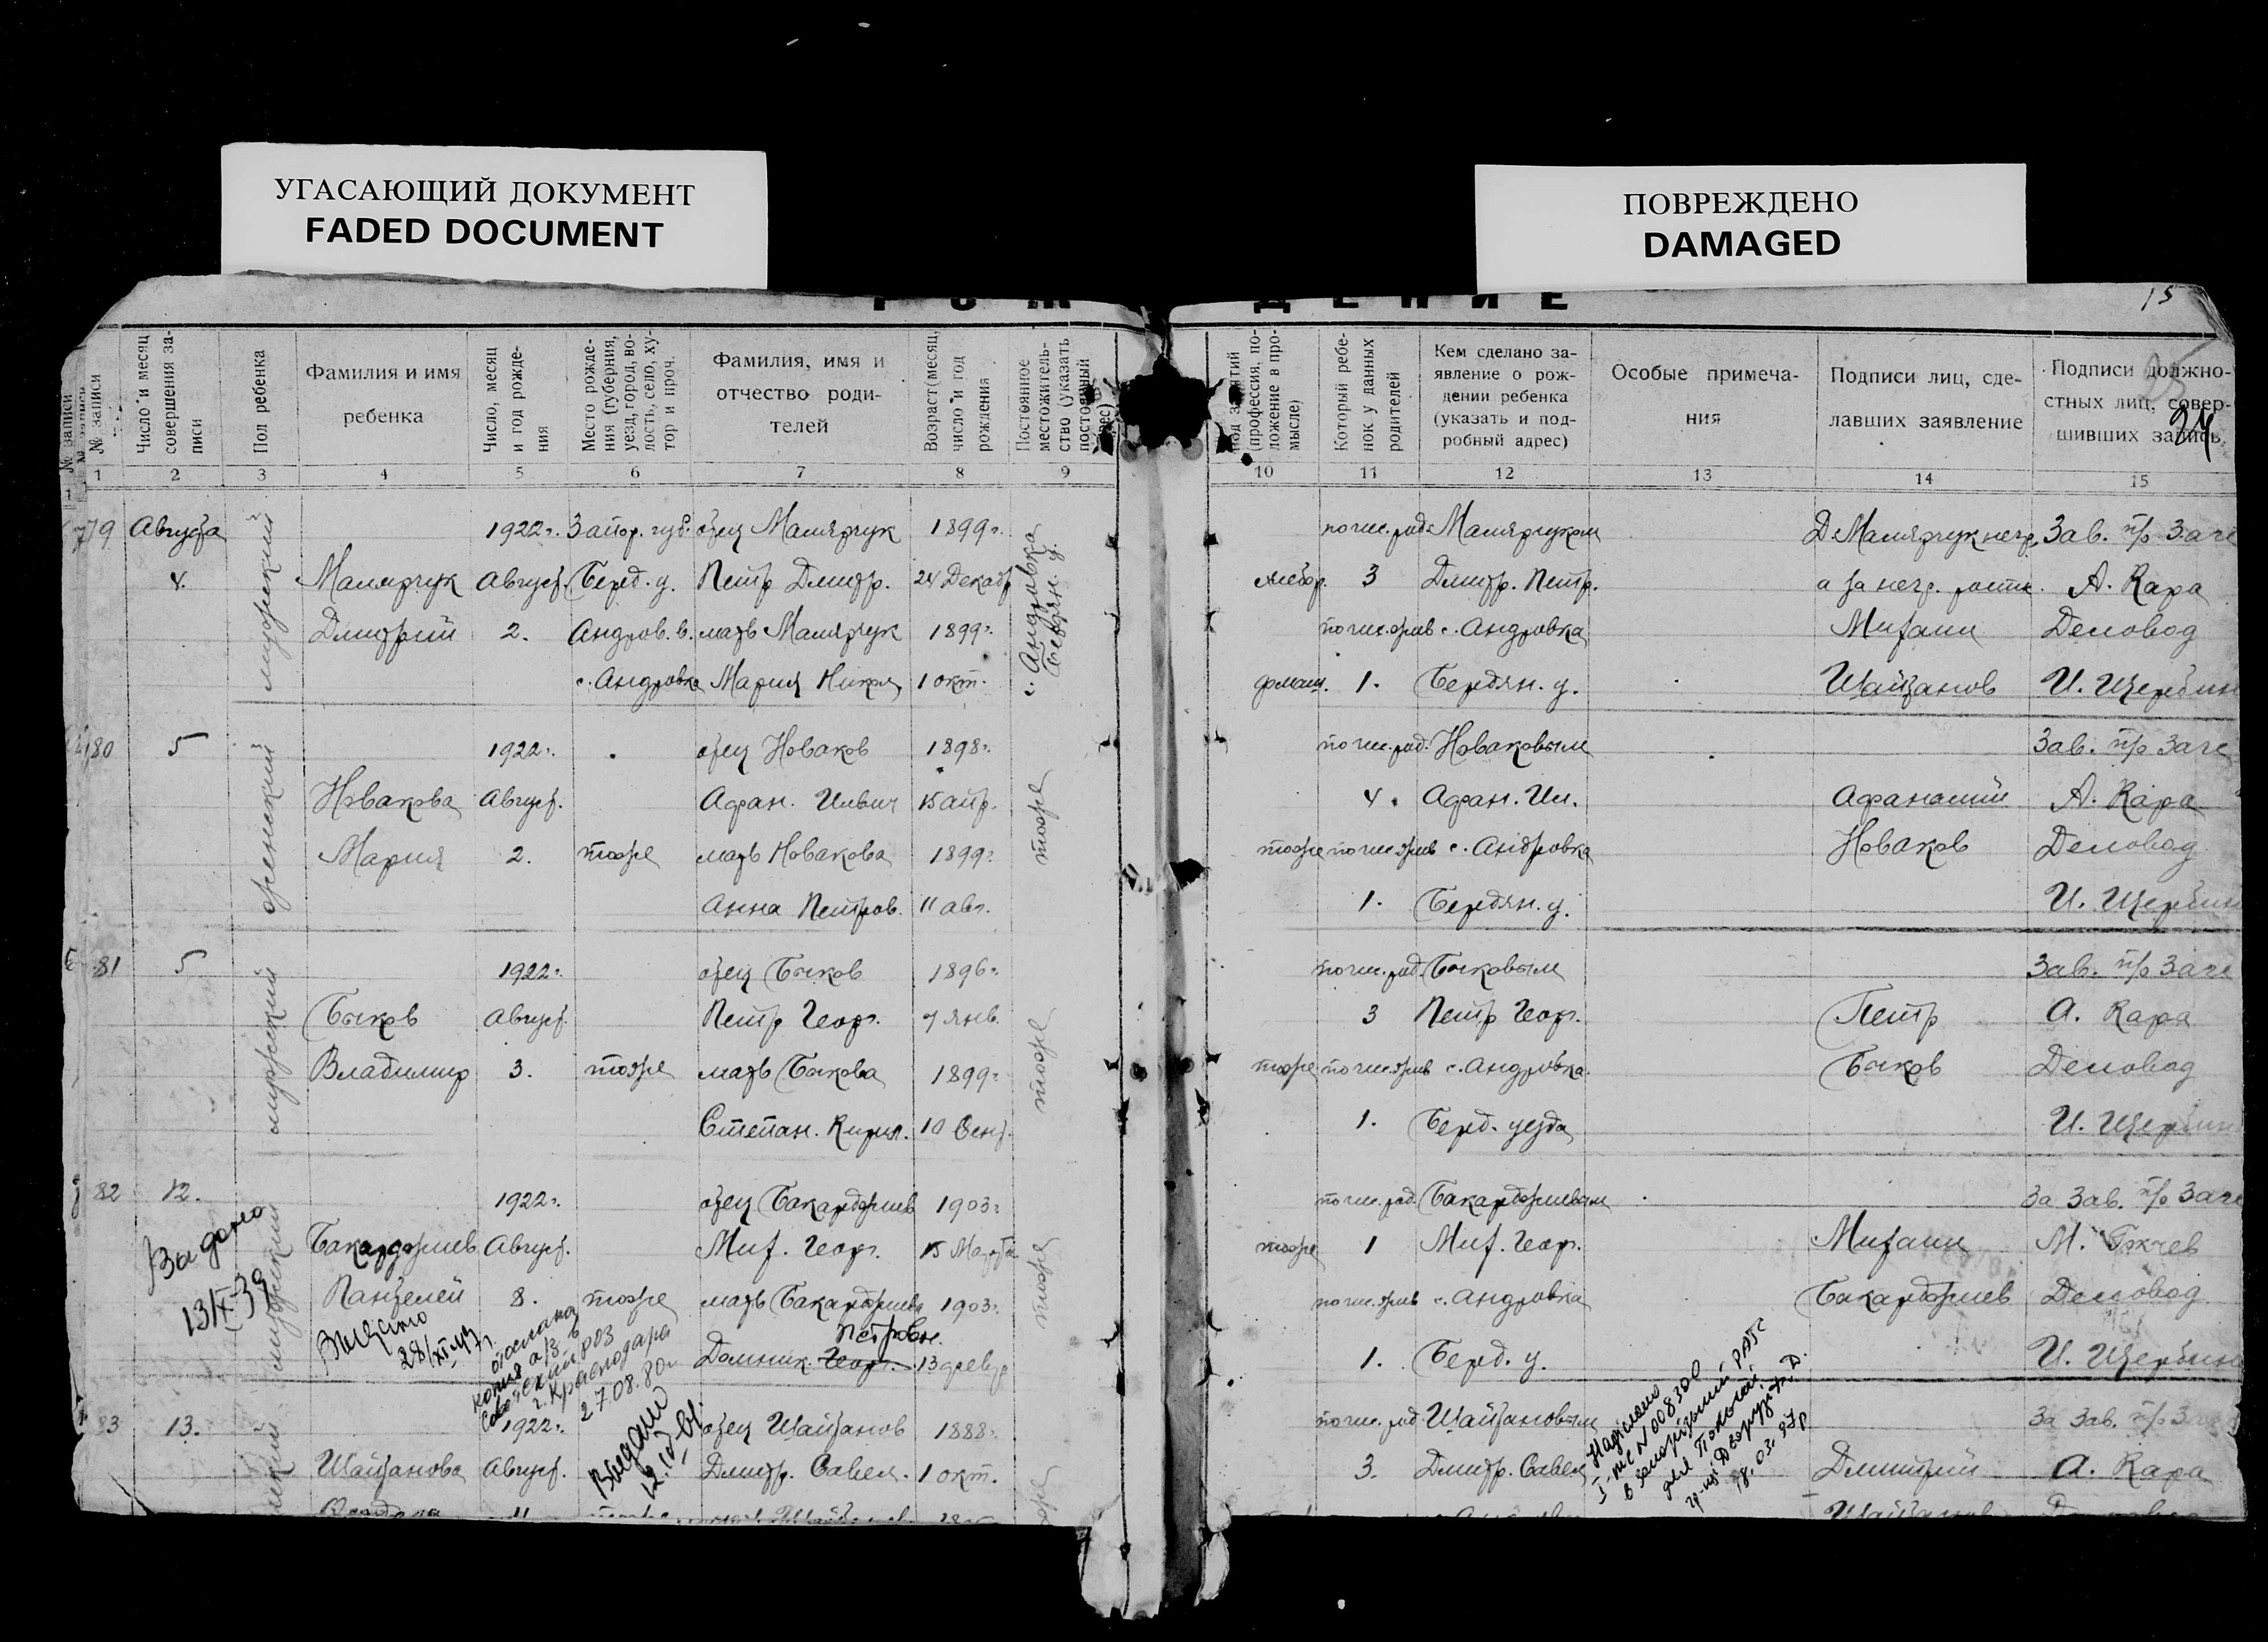 УГАСАЮЩИЙ ДОКУМЕНТ
FADED DOCUMENT
ПОВРЕЖДЕНО
DAMAGED
ДЕНИЕ
15
24
№ записи
Число и месяц совершения записи
Пол ребенка
Фамилия и имя
ребенка
Число, месяц
и год рожде-
ния
Место рожде-
ния (губерния,
уезд, город, во-
лость, село, ху-
тор и проч.
Фамилия, имя и
отчество роди-
телей
Возраст (месяц,
число и год
рождения
Постоянное
местожитель-
ство (указать
постоянный
адрес)
(профессия, по-
ложение в про-
мысле)
Который ребе-
нок у данных
родителей
Кем сделано за-
явление о рож-
дении ребенка
(указать и под-
робный адрес)
Особые примеча-
ния
Подписи лиц, сде-
лавших заявление
Подписи должно-
стных лиц, совер-
шивших запись.
1 2 3 4 5 6 7 8 9 10 11 12 13 14 15
79 Августа
4.
мужеский
Малярчук
Дмитрий
1922г.
Август.
2.
Запор. губ.
Берд. у.
Андров. в.
с. Андровка
отец Малярчук
Петр Дмитр.
мать Малярчук
Мария Никол.
1899г.
24 Декабр
1899г.
1 окт.
с. Андровка
Бердян. у.
по чис. род.
3
по чис. жив
1.
Малярчуком
Дмитр. Петр.
с. Андровка
Бердян. у.
Д. Малярчук негр.
а за негр. распис.
Митаки
Шайтанов
Зав. п/о Загс
А. Кара
Деловод
И. Щербин
80 5
женский
Новакова
Мария
1922г.
Август.
2.
тоже
отец Новаков
Афан. Ильич
мать Новакова
Анна Петров.
1898г.
15 апр.
1899г.
11 авг.
тоже
тоже
по чис. род.
4.
по чис. жив
1.
Новаковым
Афан. Ил.
с. Андровка
Бердян. у.
Афанасий
Новаков
Зав. п/о Загс
А. Кара
Деловод
И. Щербин
81 5
мужеский
Быков
Владимир
1922г.
Август.
3.
тоже
отец Быков
Петр Геор.
мать Быкова
Степан. Кирил.
1896г.
7 янв.
1899г.
10 Сент.
тоже
тоже
по чис. род.
3
по чис. жив
1.
Быковым
Петр Геор.
с. Андровка.
Берд. уезда
Петр
Быков
Зав. п/о Загс
А. Кара
Деловод
И. Щербин
82 12.
Выдано
13/IX-39
мужеский
Бакарджиев
Пантелей
1922г.
Август.
8.
тоже
отослана
копия а/з в
г. Краснодара
27.08.80г
отец Бакарджиев
Мит. Геор.
мать Бакарджиева
Петровн.
Домник. Геор.
1903г.
15 Марта
1903г.
13 февр
тоже
тоже
по чис. род.
1
по чис. жив
1.
Бакарджиевым
Мит. Геор.
с. Андровка
Берд. у.
Митаки
Бакарджиев
За Зав. п/о Загс
Деловод
И. Щербин
83 13.
Шайтанова
1922г.
Август.
11
Выдано
отец Шайтанов
Дмитр. Савел.
1888г.
1 окт.
по чис. род.
3.
Шайтановым
Дмитр. Савел.
18.03.97р
Дмитрий
Шайтанов
За Зав. п/о Загс
А. Кара